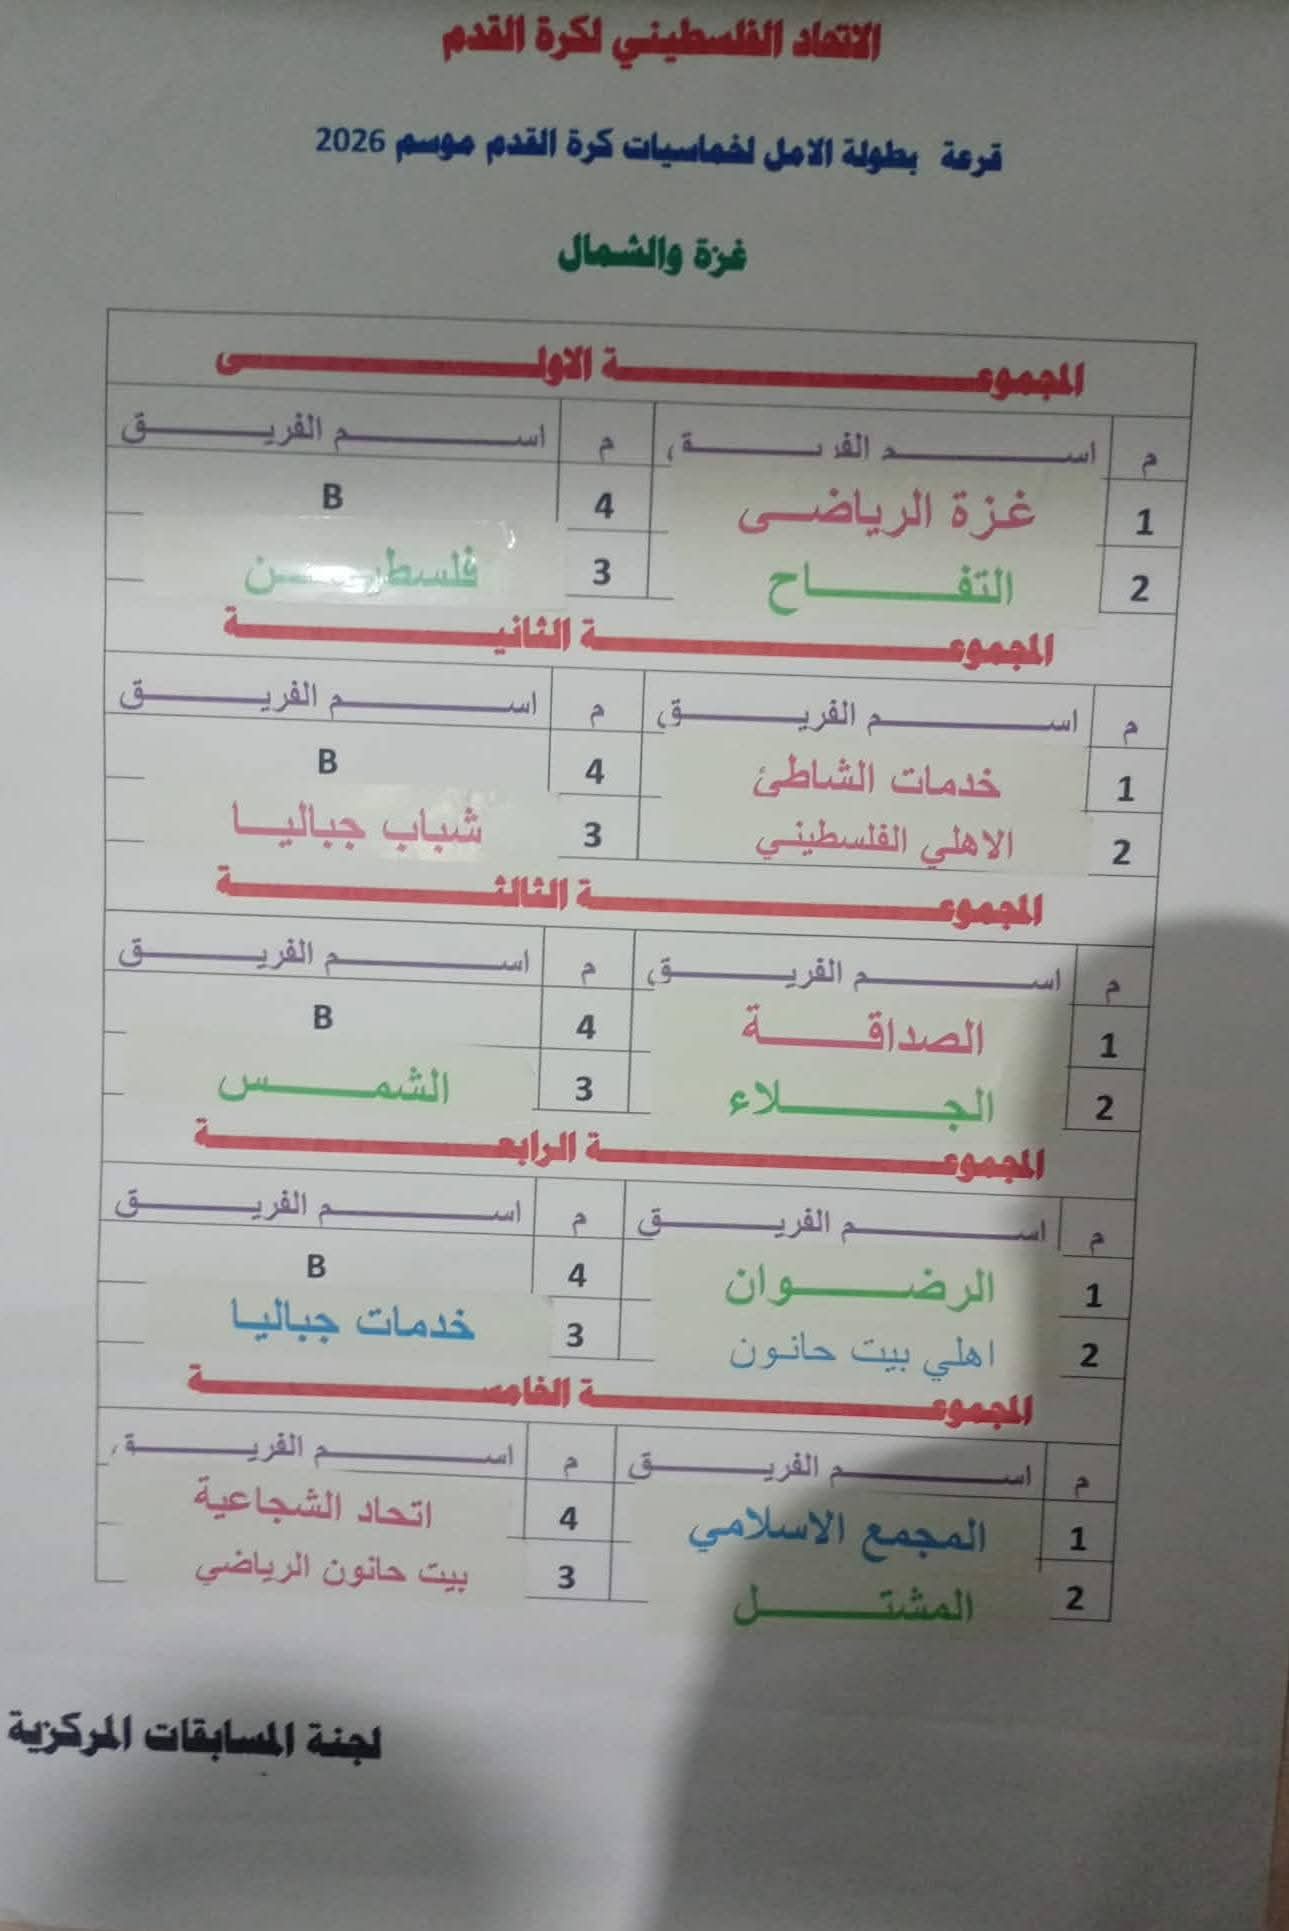 الاتحاد الفلسطيني لكرة القدم
قرعة بطولة الامل لخماسيات كرة القدم موسم 2026
غزة والشمال
المجموعة الاولى
م اسم الفريق م اسم الفريق
1 غزة الرياضي 4 B
2 التفاح 3 فلسطين
المجموعة الثانية
م اسم الفريق م اسم الفريق
1 خدمات الشاطئ 4 B
2 الاهلي الفلسطيني 3 شباب جباليا
المجموعة الثالثة
م اسم الفريق م اسم الفريق
1 الصداقة 4 B
2 الجلاء 3 الشمس
المجموعة الرابعة
م اسم الفريق م اسم الفريق
1 الرضوان 4 B
2 اهلي بيت حانون 3 خدمات جباليا
المجموعة الخامسة
م اسم الفريق م اسم الفريق
1 المجمع الاسلامي 4 اتحاد الشجاعية
2 المشتل 3 بيت حانون الرياضي
لجنة المسابقات المركزية